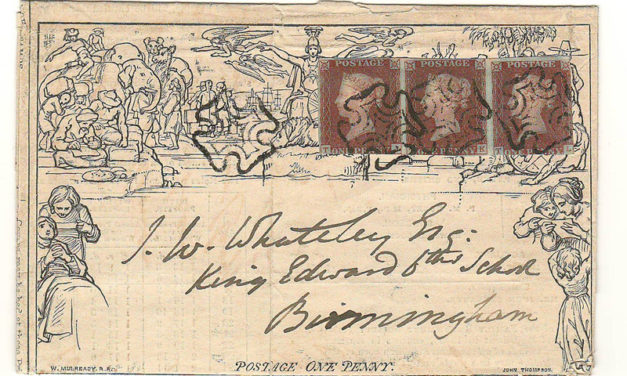 POSTAGE POSTAGE POSTAGE
ONE PENNY ONE PENNY ONE PENNY
J. W. Whateley Esq:
King Edward 6ths School
Birmingham
W. MULREADY. R.A. POSTAGE ONE PENNY. JOHN THOMPSON.